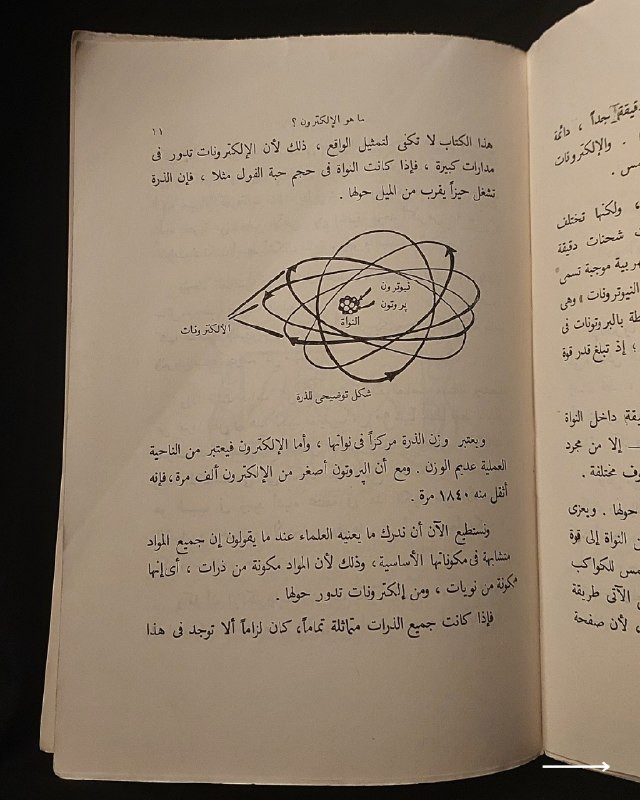 ما هو الإلكترون ؟
١١
هذا الكتاب لا تكفى لتمثيل الواقع ، ذلك لأن الإلكترونات تدور فى
مدارات كبيرة ، فإذا كانت النواة فى حجم حبة الفول مثلا ، فإن الذرة
تشغل حيزاً يقرب من الميل حولها .
نيوترون
پروتون
النواة
الألكترونات
شكل توضيحى للذرة
ويعتبر وزن الذرة مركزاً فى نواتها ، وأما الإلكترون فيعتبر من الناحية
العملية عديم الوزن . ومع أن الپروتون أصغر من الإلكترون ألف مرة ، فإنه
أثقل منه ١٨٤٠ مرة .
ونستطيع الآن أن ندرك ما يعنيه العلماء عند ما يقولون إن جميع المواد
متشابهة فى مكوناتها الأساسية ، وذلك لأن المواد مكونة من ذرات ، أى إنها
مكونة من نويات ، ومن إلكترونات تدور حولها .
فإذا كانت جميع الذرات متماثلة تماماً ، كان لزاماً ألا توجد فى هذا
دقيقة جداً ، دائمة
. والإلكترونات
، ولكنها تختلف
شحنات دقيقة
كهربية موجبة تسمى
النيوترونات » وهى
بالبروتونات فى
؛ إذ تبلغ قدر قوة
داخل النواة
— إلا من مجرد
مختلفة .
حولها . ويعزى
النواة إلى قوة
للكواكب
الآتى طريقة
، لأن صفحة